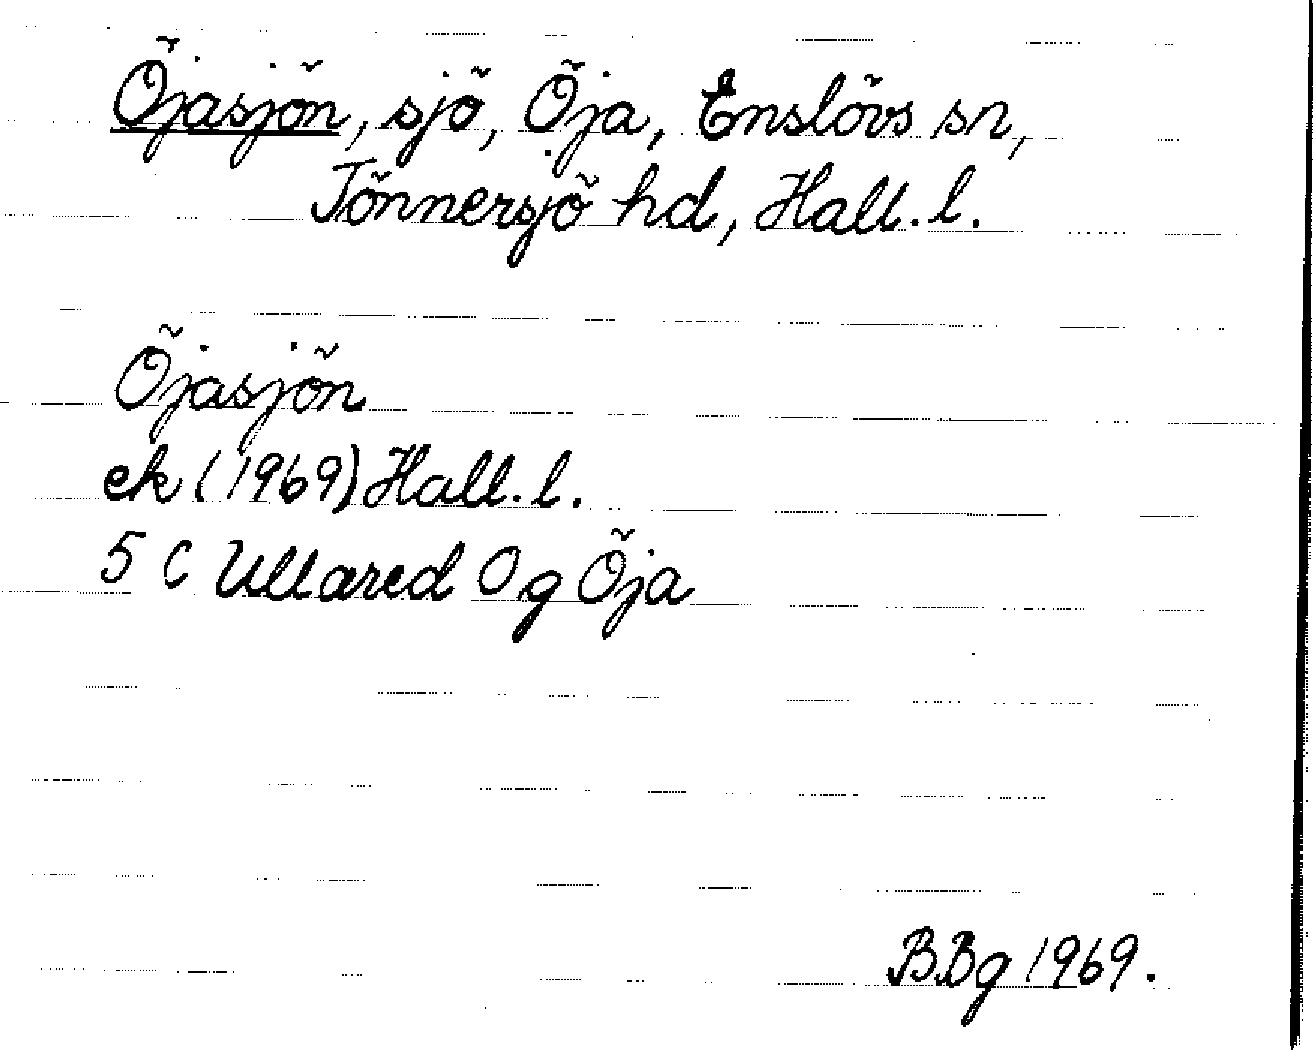 Öjasjön, sjö, Öja, Enslövs sn,
Tönnersjö hd, Hall. l.
Öjasjön
ek (1969) Hall. l.
5 C Ullared 0 g Öja
BBg 1969.